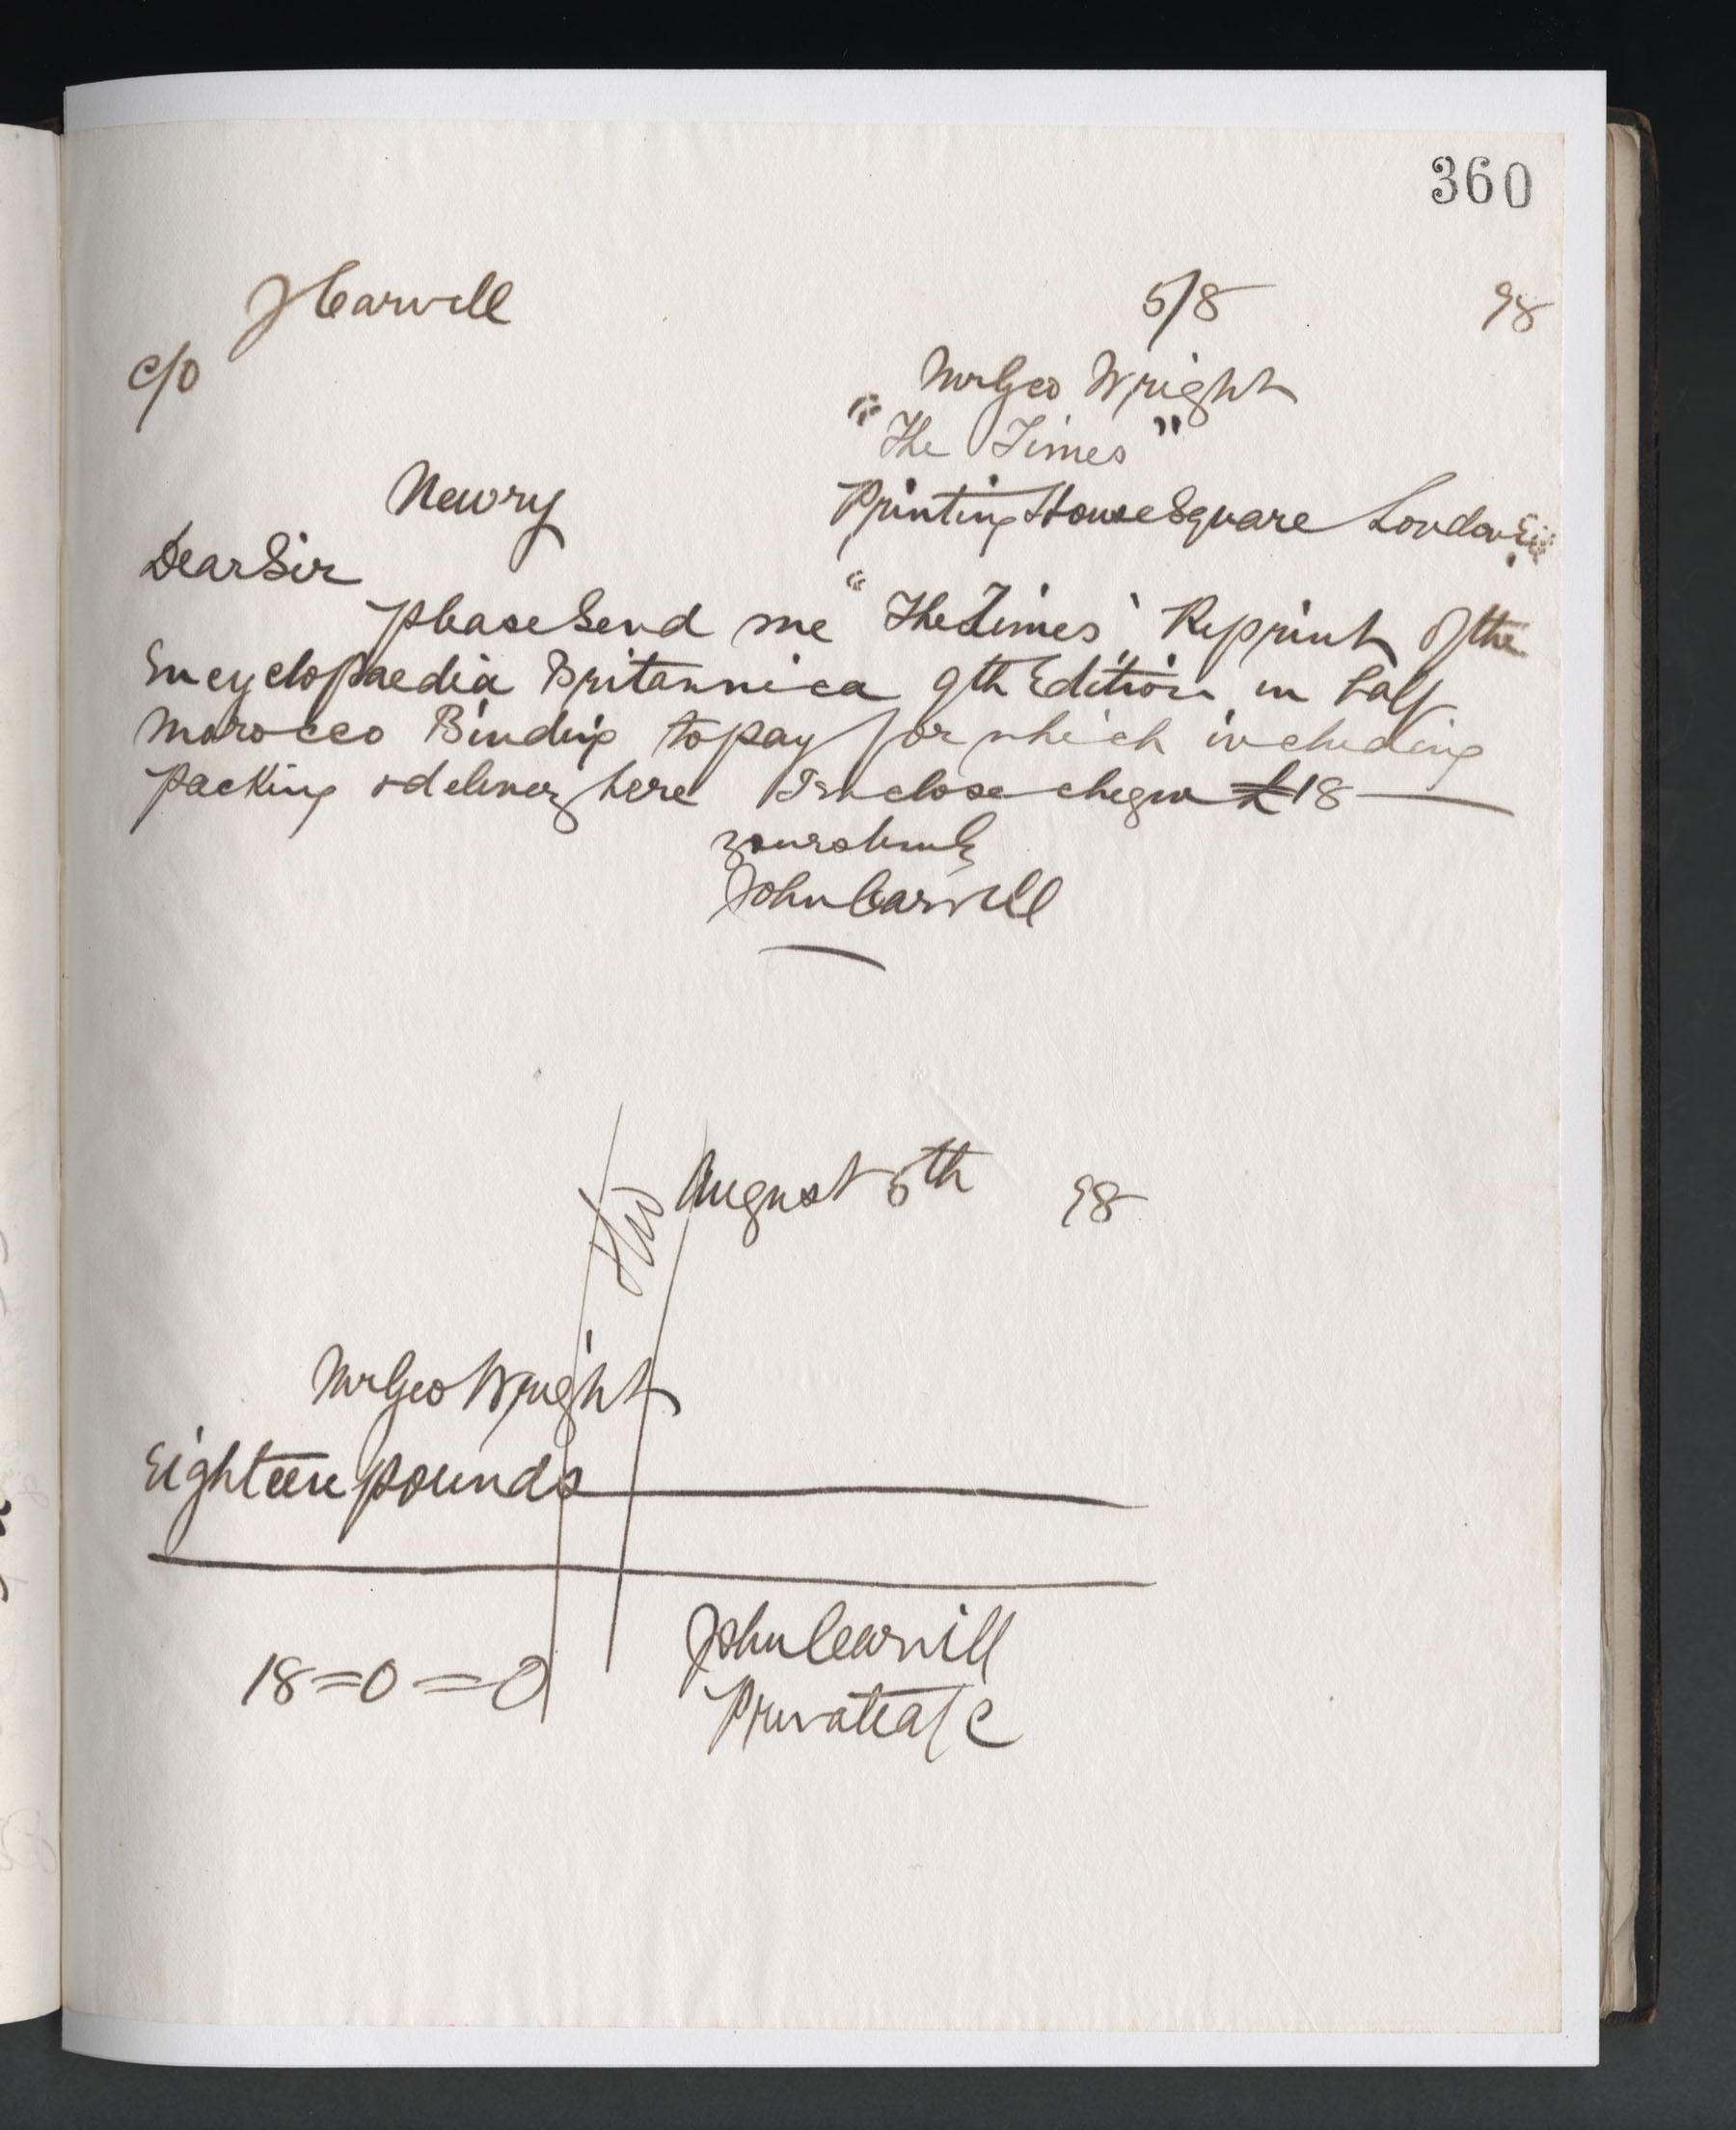 360
J Carvill 5/8 98
c/o Mr Geo Wright
"The Times"
Newry Printing House Square London E.C.
Dear Sir
please send me "The Times" Reprint of the
Encyclopaedia Britannica 9th Edition in half
Morocco Binding to pay for which including
packing & delivery here I enclose cheque £18
yours truly
John Carvill
August 5th 98
Mr Geo Wright
Eighteen pounds
18=0=0 John Carvill
Private a/c